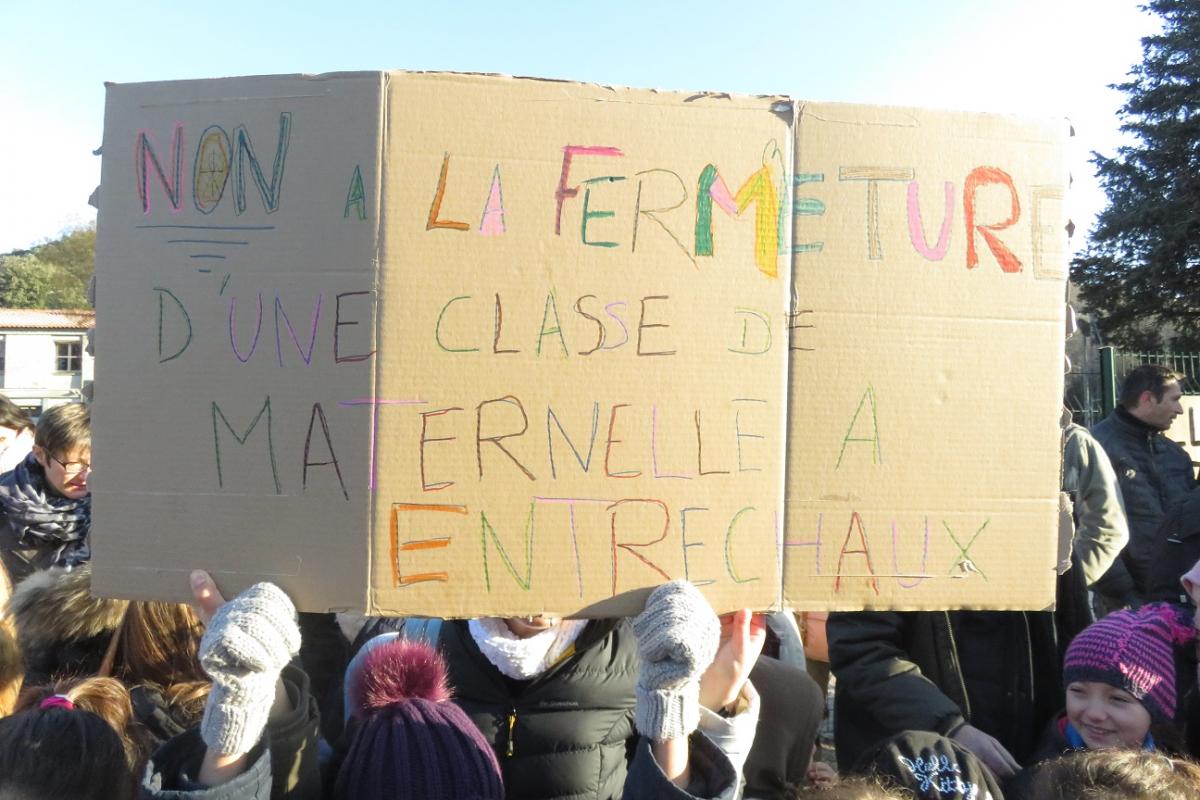 NON A LA FERMETURE
D'UNE CLASSE DE
MATERNELLE A
ENTRECHAUX
Hello
Kitty